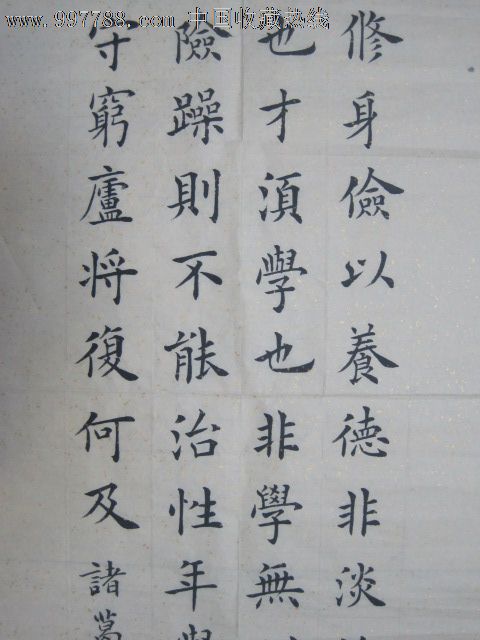 www.997788.com 中国收藏热线
修身儉以養德非淡
也才須學也非學無
險躁則不能治性年
守窮廬將復何及諸葛